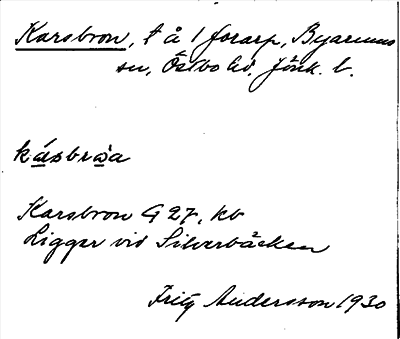 Karsbron, t å 1 forarp, Byarums
sn, Östbo hd. Jönk. l.
kásbròa
Karsbron G 27, kb
Ligger vid Silverbäcken
Fritz Andersson 1930